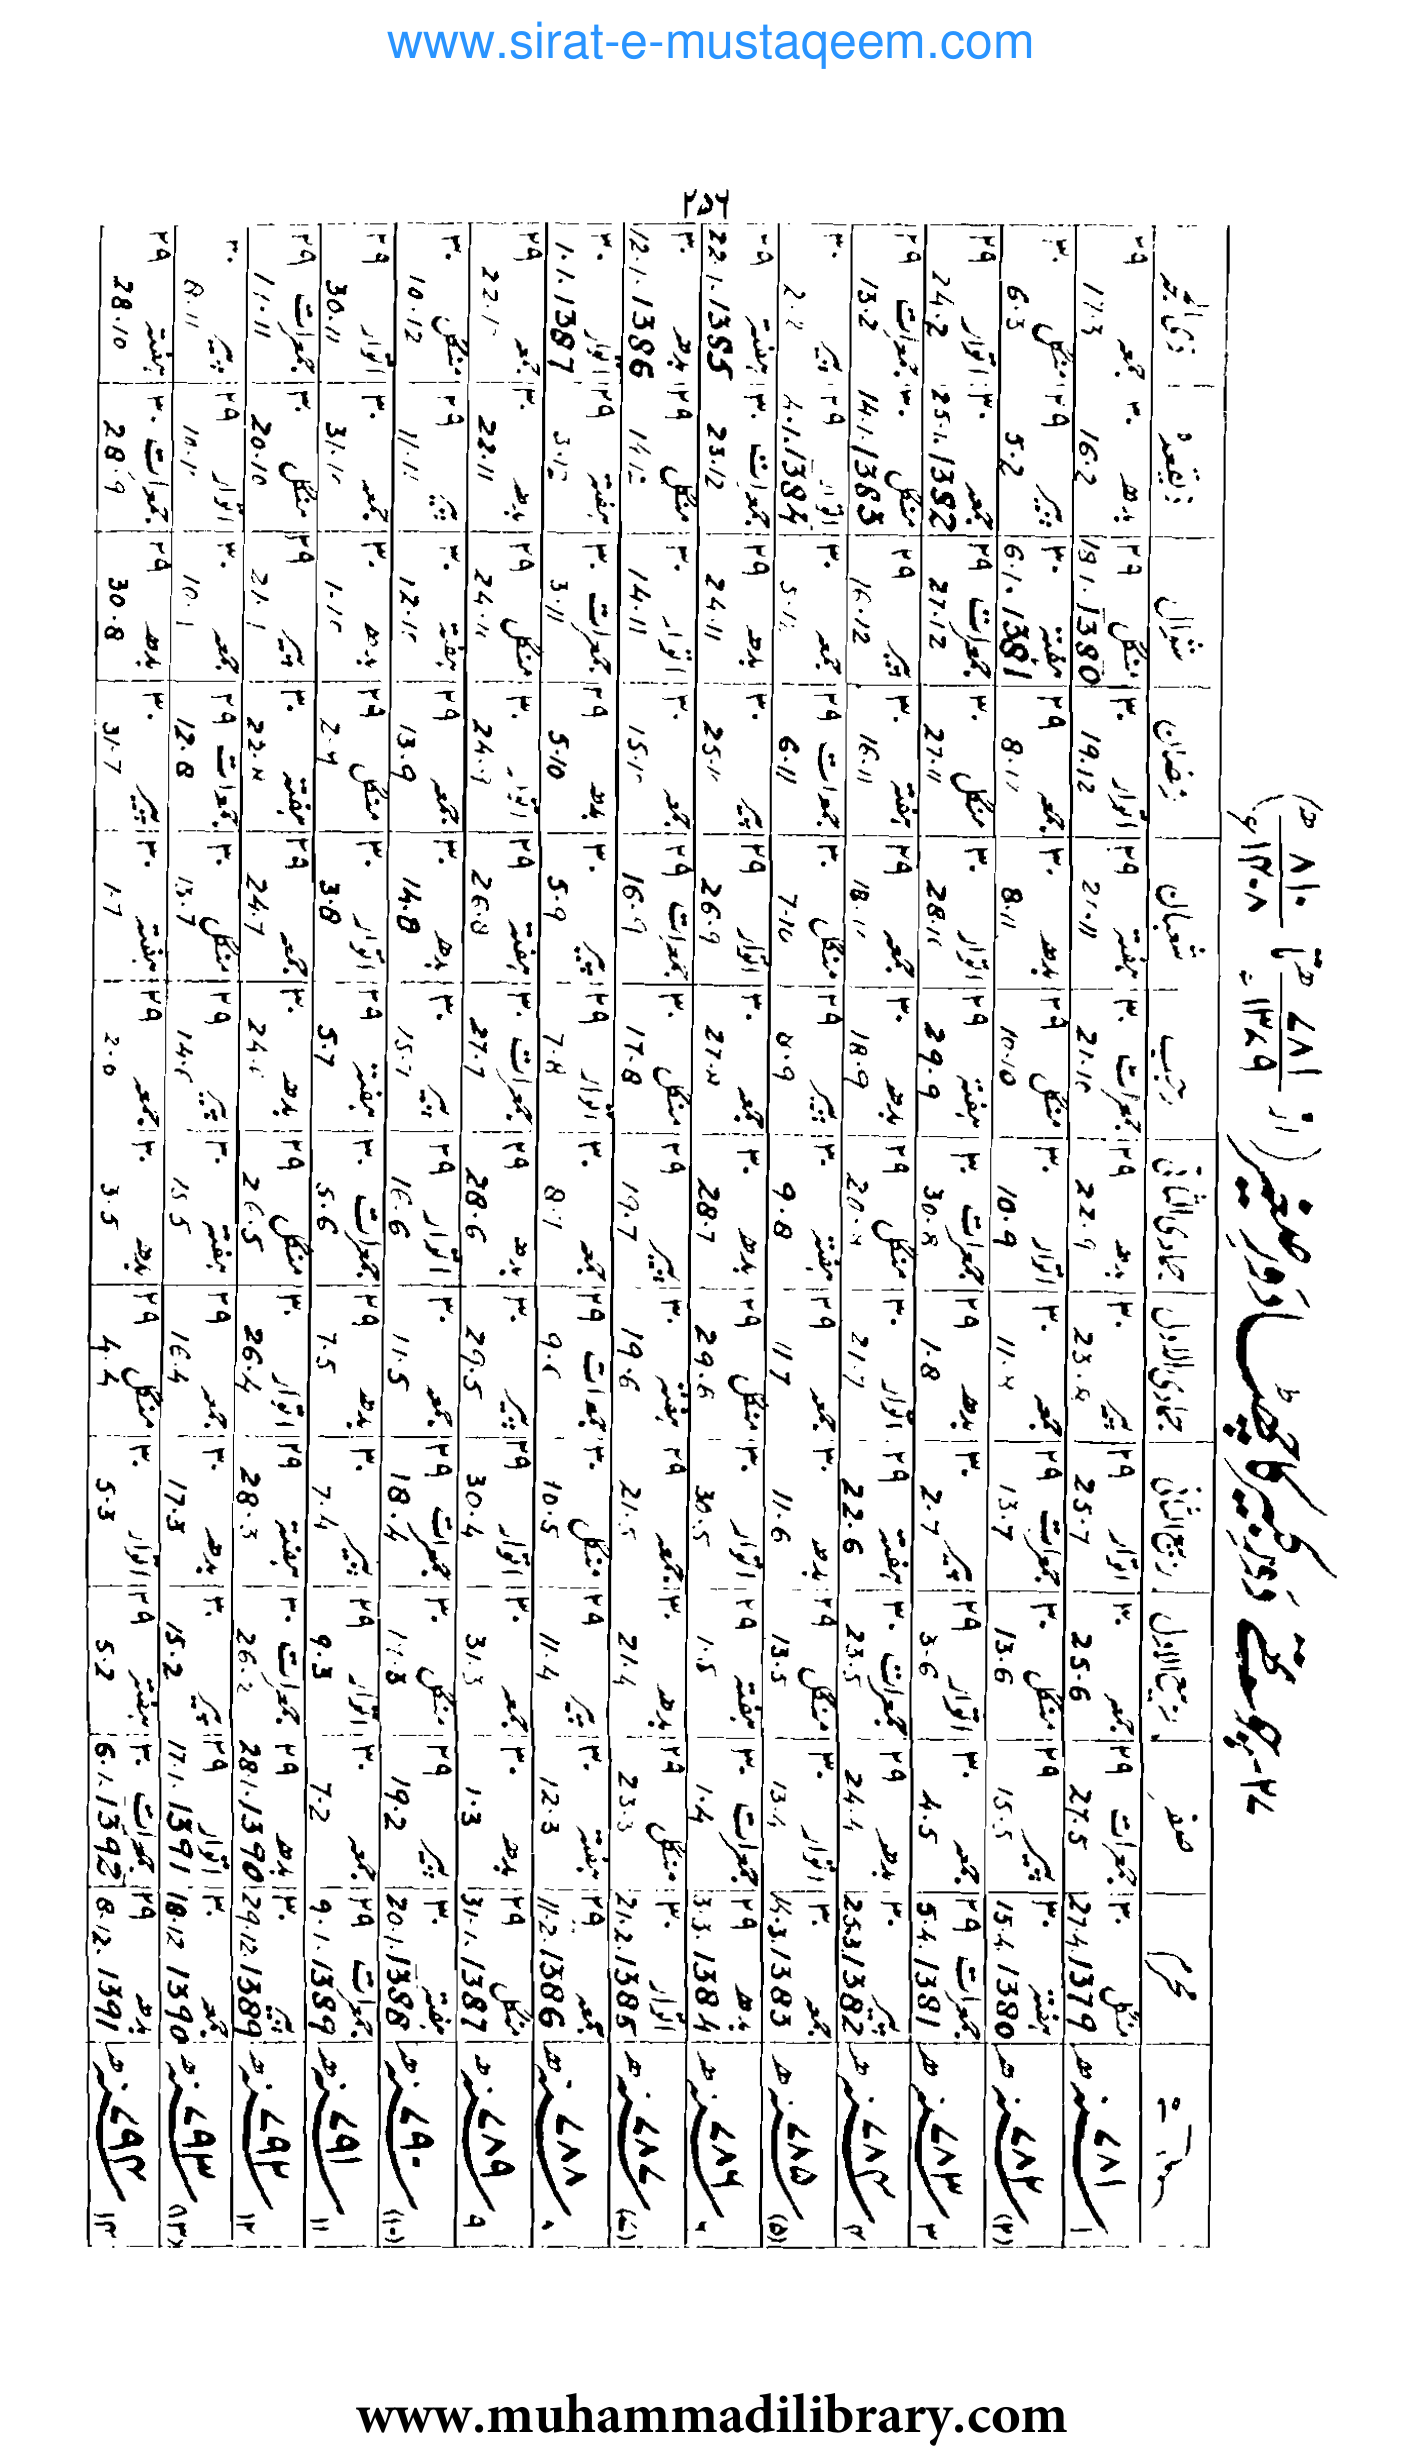 www.sirat-e-mustaqeem.com
۲۵۶
(از ۷۸۱ھ تا ۸۱۰ھ)
۱۳۷۹ - ۱۴۰۸ء
محرم صفر ربیع الاول ربیع الثانی جمادی الاول جمادی الثانی رجب شعبان رمضان شوال ذیقعدہ ذی الحجہ
۱ ۷۸۱ھ منگل ۳۰ 27.4.1379 جمعرات ۲۹ 27.5 جمعہ ۳۰ 25.6 اتوار ۲۹ 25.7 پیر ۳۰ 23.8 بدھ ۲۹ 22.9 جمعرات ۳۰ 21.10 ہفتہ ۲۹ 20.11 اتوار ۳۰ 19.12 منگل ۲۹ 18.1.1380 بدھ ۳۰ 16.2 جمعہ ۲۹ 17.3
(۲) ۷۸۲ھ ہفتہ ۳۰ 15.4.1380 پیر ۲۹ 15.5 منگل ۳۰ 13.6 جمعرات ۲۹ 13.7 جمعہ ۳۰ 11.8 اتوار ۳۰ 10.9 منگل ۲۹ 10.10 بدھ ۳۰ 8.11 جمعہ ۲۹ 8.12 ہفتہ ۳۰ 6.1.1381 پیر ۲۹ 5.2 منگل ۳۰ 6.3
۳ ۷۸۳ھ جمعرات ۲۹ 5.4.1381 جمعہ ۳۰ 4.5 اتوار ۲۹ 3.6 پیر ۳۰ 2.7 بدھ ۲۹ 1.8 جمعرات ۳۰ 30.8 ہفتہ ۲۹ 29.9 اتوار ۳۰ 28.10 منگل ۳۰ 27.11 جمعرات ۲۹ 27.12 جمعہ ۳۰ 25.1.1382 اتوار ۲۹ 24.2
۴ ۷۸۴ھ پیر ۳۰ 25.3.1382 بدھ ۲۹ 24.4 جمعرات ۳۰ 23.5 ہفتہ ۲۹ 22.6 اتوار ۳۰ 21.7 منگل ۲۹ 20.8 بدھ ۳۰ 18.9 جمعہ ۲۹ 18.10 ہفتہ ۳۰ 16.11 پیر ۲۹ 16.12 منگل ۳۰ 14.1.1383 جمعرات ۲۹ 13.2
(۵) ۷۸۵ھ جمعہ ۳۰ 14.3.1383 اتوار ۳۰ 13.4 منگل ۲۹ 13.5 بدھ ۳۰ 11.6 جمعہ ۲۹ 11.7 ہفتہ ۳۰ 9.8 پیر ۲۹ 8.9 منگل ۳۰ 7.10 جمعرات ۲۹ 6.11 جمعہ ۳۰ 5.12 اتوار ۲۹ 4.1.1384 پیر ۳۰ 2.2
۶ ۷۸۶ھ بدھ ۲۹ 3.3.1384 جمعرات ۳۰ 1.4 ہفتہ ۲۹ 1.5 اتوار ۳۰ 30.5 منگل ۲۹ 29.6 بدھ ۳۰ 28.7 جمعہ ۳۰ 27.8 اتوار ۲۹ 26.9 پیر ۳۰ 25.10 بدھ ۲۹ 24.11 جمعرات ۳۰ 23.12 ہفتہ ۲۹ 22.1.1385
(۷) ۷۸۷ھ اتوار ۳۰ 21.2.1385 منگل ۲۹ 23.3 بدھ ۳۰ 21.4 جمعہ ۲۹ 21.5 ہفتہ ۳۰ 19.6 پیر ۲۹ 19.7 منگل ۳۰ 17.8 جمعرات ۲۹ 16.9 جمعہ ۳۰ 15.10 اتوار ۳۰ 14.11 منگل ۲۹ 14.12 بدھ ۳۰ 12.1.1386
۸ ۷۸۸ھ جمعہ ۲۹ 11.2.1386 ہفتہ ۳۰ 12.3 پیر ۲۹ 11.4 منگل ۳۰ 10.5 جمعرات ۲۹ 9.6 جمعہ ۳۰ 8.7 اتوار ۲۹ 7.8 پیر ۳۰ 5.9 بدھ ۲۹ 5.10 جمعرات ۳۰ 3.11 ہفتہ ۲۹ 3.12 اتوار ۳۰ 1.1.1387
۹ ۷۸۹ھ منگل ۲۹ 31.1.1387 بدھ ۳۰ 1.3 جمعہ ۳۰ 31.3 اتوار ۲۹ 30.4 پیر ۳۰ 29.5 بدھ ۲۹ 28.6 جمعرات ۳۰ 27.7 ہفتہ ۲۹ 26.8 اتوار ۳۰ 24.9 منگل ۲۹ 24.10 بدھ ۳۰ 22.11 جمعہ ۲۹ 22.12
(۱۰) ۷۹۰ھ ہفتہ ۳۰ 20.1.1388 پیر ۲۹ 19.2 منگل ۳۰ جمعرات ۲۹ 18.4 جمعہ ۳۰ 17.5 اتوار ۲۹ 16.6 پیر ۳۰ 15.7 بدھ ۳۰ 14.8 جمعہ ۲۹ 13.9 ہفتہ ۳۰ 12.10 پیر ۲۹ 11.11 منگل ۳۰ 10.12
۱۱ ۷۹۱ھ جمعرات ۲۹ 9.1.1389 جمعہ ۳۰ 7.2 اتوار ۲۹ 9.3 پیر ۳۰ 7.4 بدھ ۲۹ 7.5 جمعرات ۳۰ 5.6 ہفتہ ۲۹ 5.7 اتوار ۳۰ 3.8 منگل ۲۹ 2.9 بدھ ۳۰ 1.10 جمعہ ۳۰ 31.10 اتوار ۲۹ 30.11
۱۲ ۷۹۲ھ پیر ۳۰ 29.12.1389 بدھ ۲۹ 28.1.1390 جمعرات ۳۰ 26.2 ہفتہ ۲۹ 28.3 اتوار ۳۰ 26.4 منگل ۲۹ 26.5 بدھ ۳۰ 24.6 جمعہ ۲۹ 24.7 ہفتہ ۳۰ 22.8 پیر ۲۹ 21.9 منگل ۳۰ 20.10 جمعرات ۲۹ 19.11
(۱۳) ۷۹۳ھ جمعہ ۳۰ 18.12.1390 اتوار ۲۹ 17.1.1391 پیر ۳۰ 15.2 بدھ ۳۰ 17.3 جمعہ ۲۹ 16.4 ہفتہ ۳۰ 15.5 پیر ۲۹ 14.6 منگل ۳۰ 13.7 جمعرات ۲۹ 12.8 جمعہ ۳۰ 10.9 اتوار ۲۹ 10.10 پیر ۳۰ 8.11
۱۴ ۷۹۴ھ بدھ ۲۹ 8.12.1391 جمعرات ۳۰ 6.1.1392 ہفتہ ۲۹ 5.2 اتوار ۳۰ 5.3 منگل ۲۹ 4.4 بدھ ۳۰ 3.5 جمعہ ۲۹ 2.6 ہفتہ ۳۰ 1.7 پیر ۳۰ 31.7 بدھ ۲۹ 30.8 جمعرات ۳۰ 28.9 ہفتہ ۲۹ 28.10
www.muhammadilibrary.com